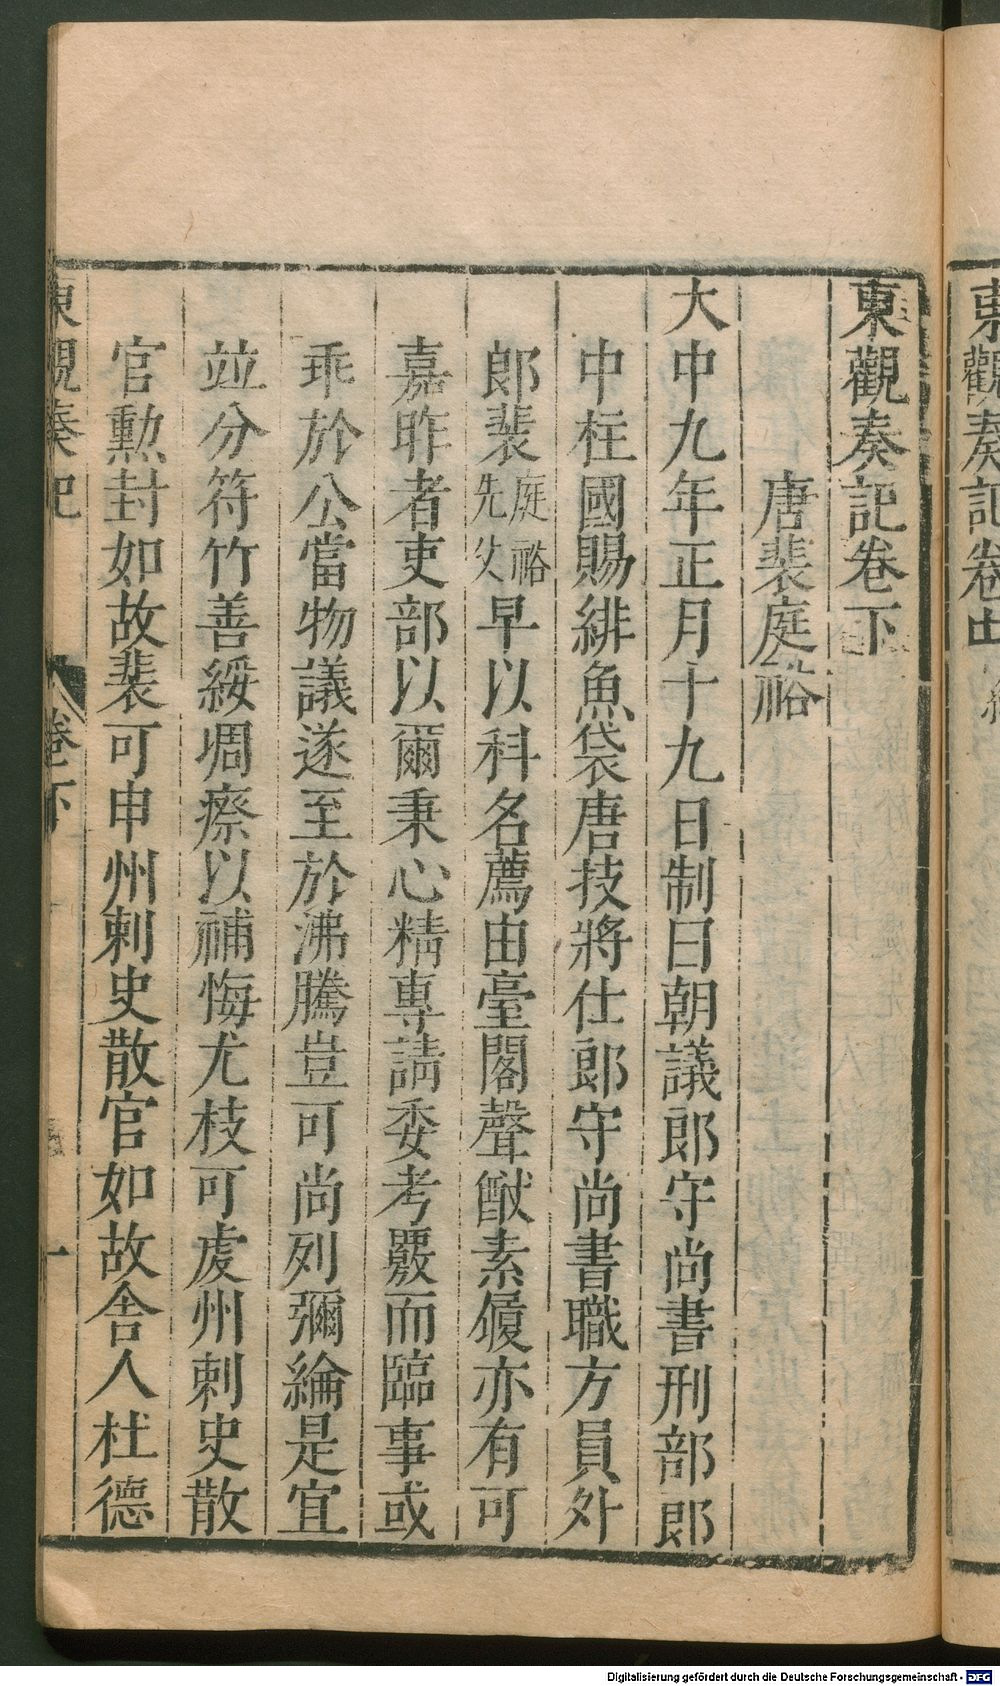 東觀奏記卷下
唐裴庭裕
大中九年正月十九日制曰朝議郎守尚書刑部郎
中柱國賜緋魚袋唐技將仕郎守尚書職方員外
郎裴庭裕先父早以科名薦由臺閣聲猷素履亦有可
嘉昨者吏部以爾秉心精專請委考覈而臨事或
乖於公當物議遂至於沸騰豈可尚列彌綸是宜
並分符竹善綏堋瘵以補悔尤枝可虔州刺史散
官勳封如故裴可申州刺史散官如故舍人杜德
東觀奏記
卷下
一
東觀奏記卷中
Digitalisierung gefördert durch die Deutsche Forschungsgemeinschaft - DFG